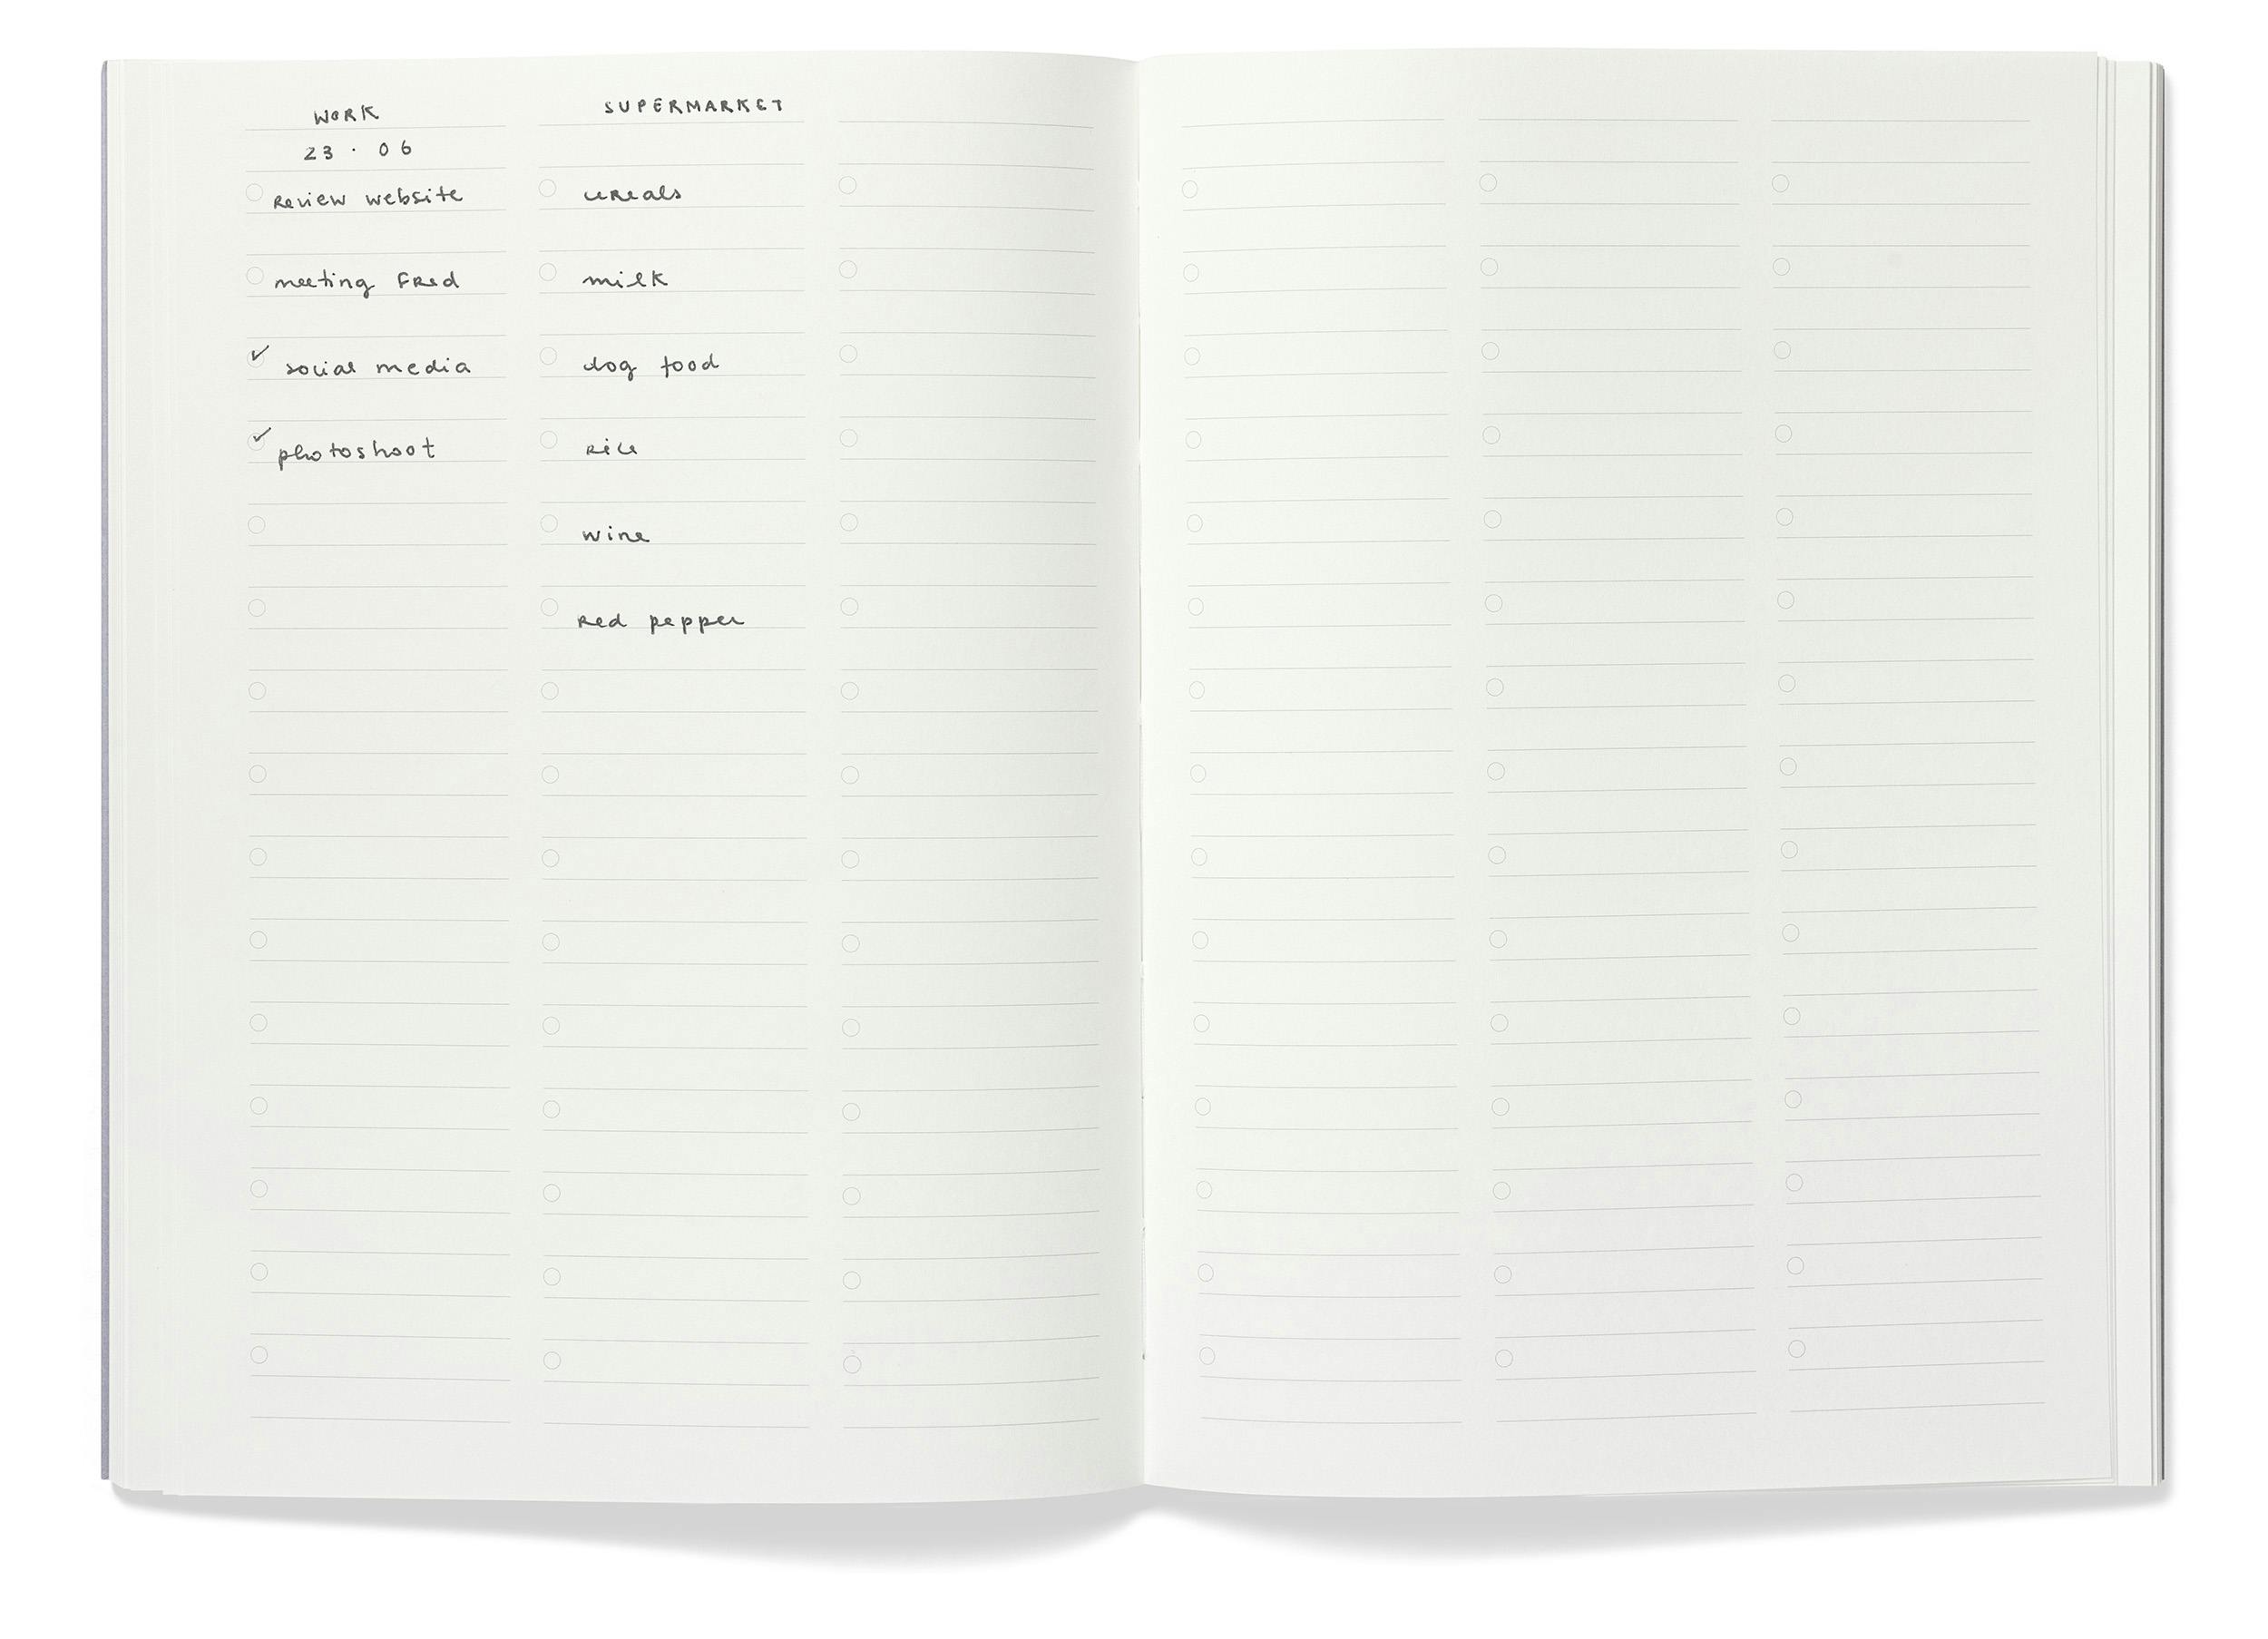 WORK
23 · 06
Review website
meeting Fred
✓ social media
✓ photoshoot
SUPERMARKET
cereals
milk
dog food
rice
wine
red pepper